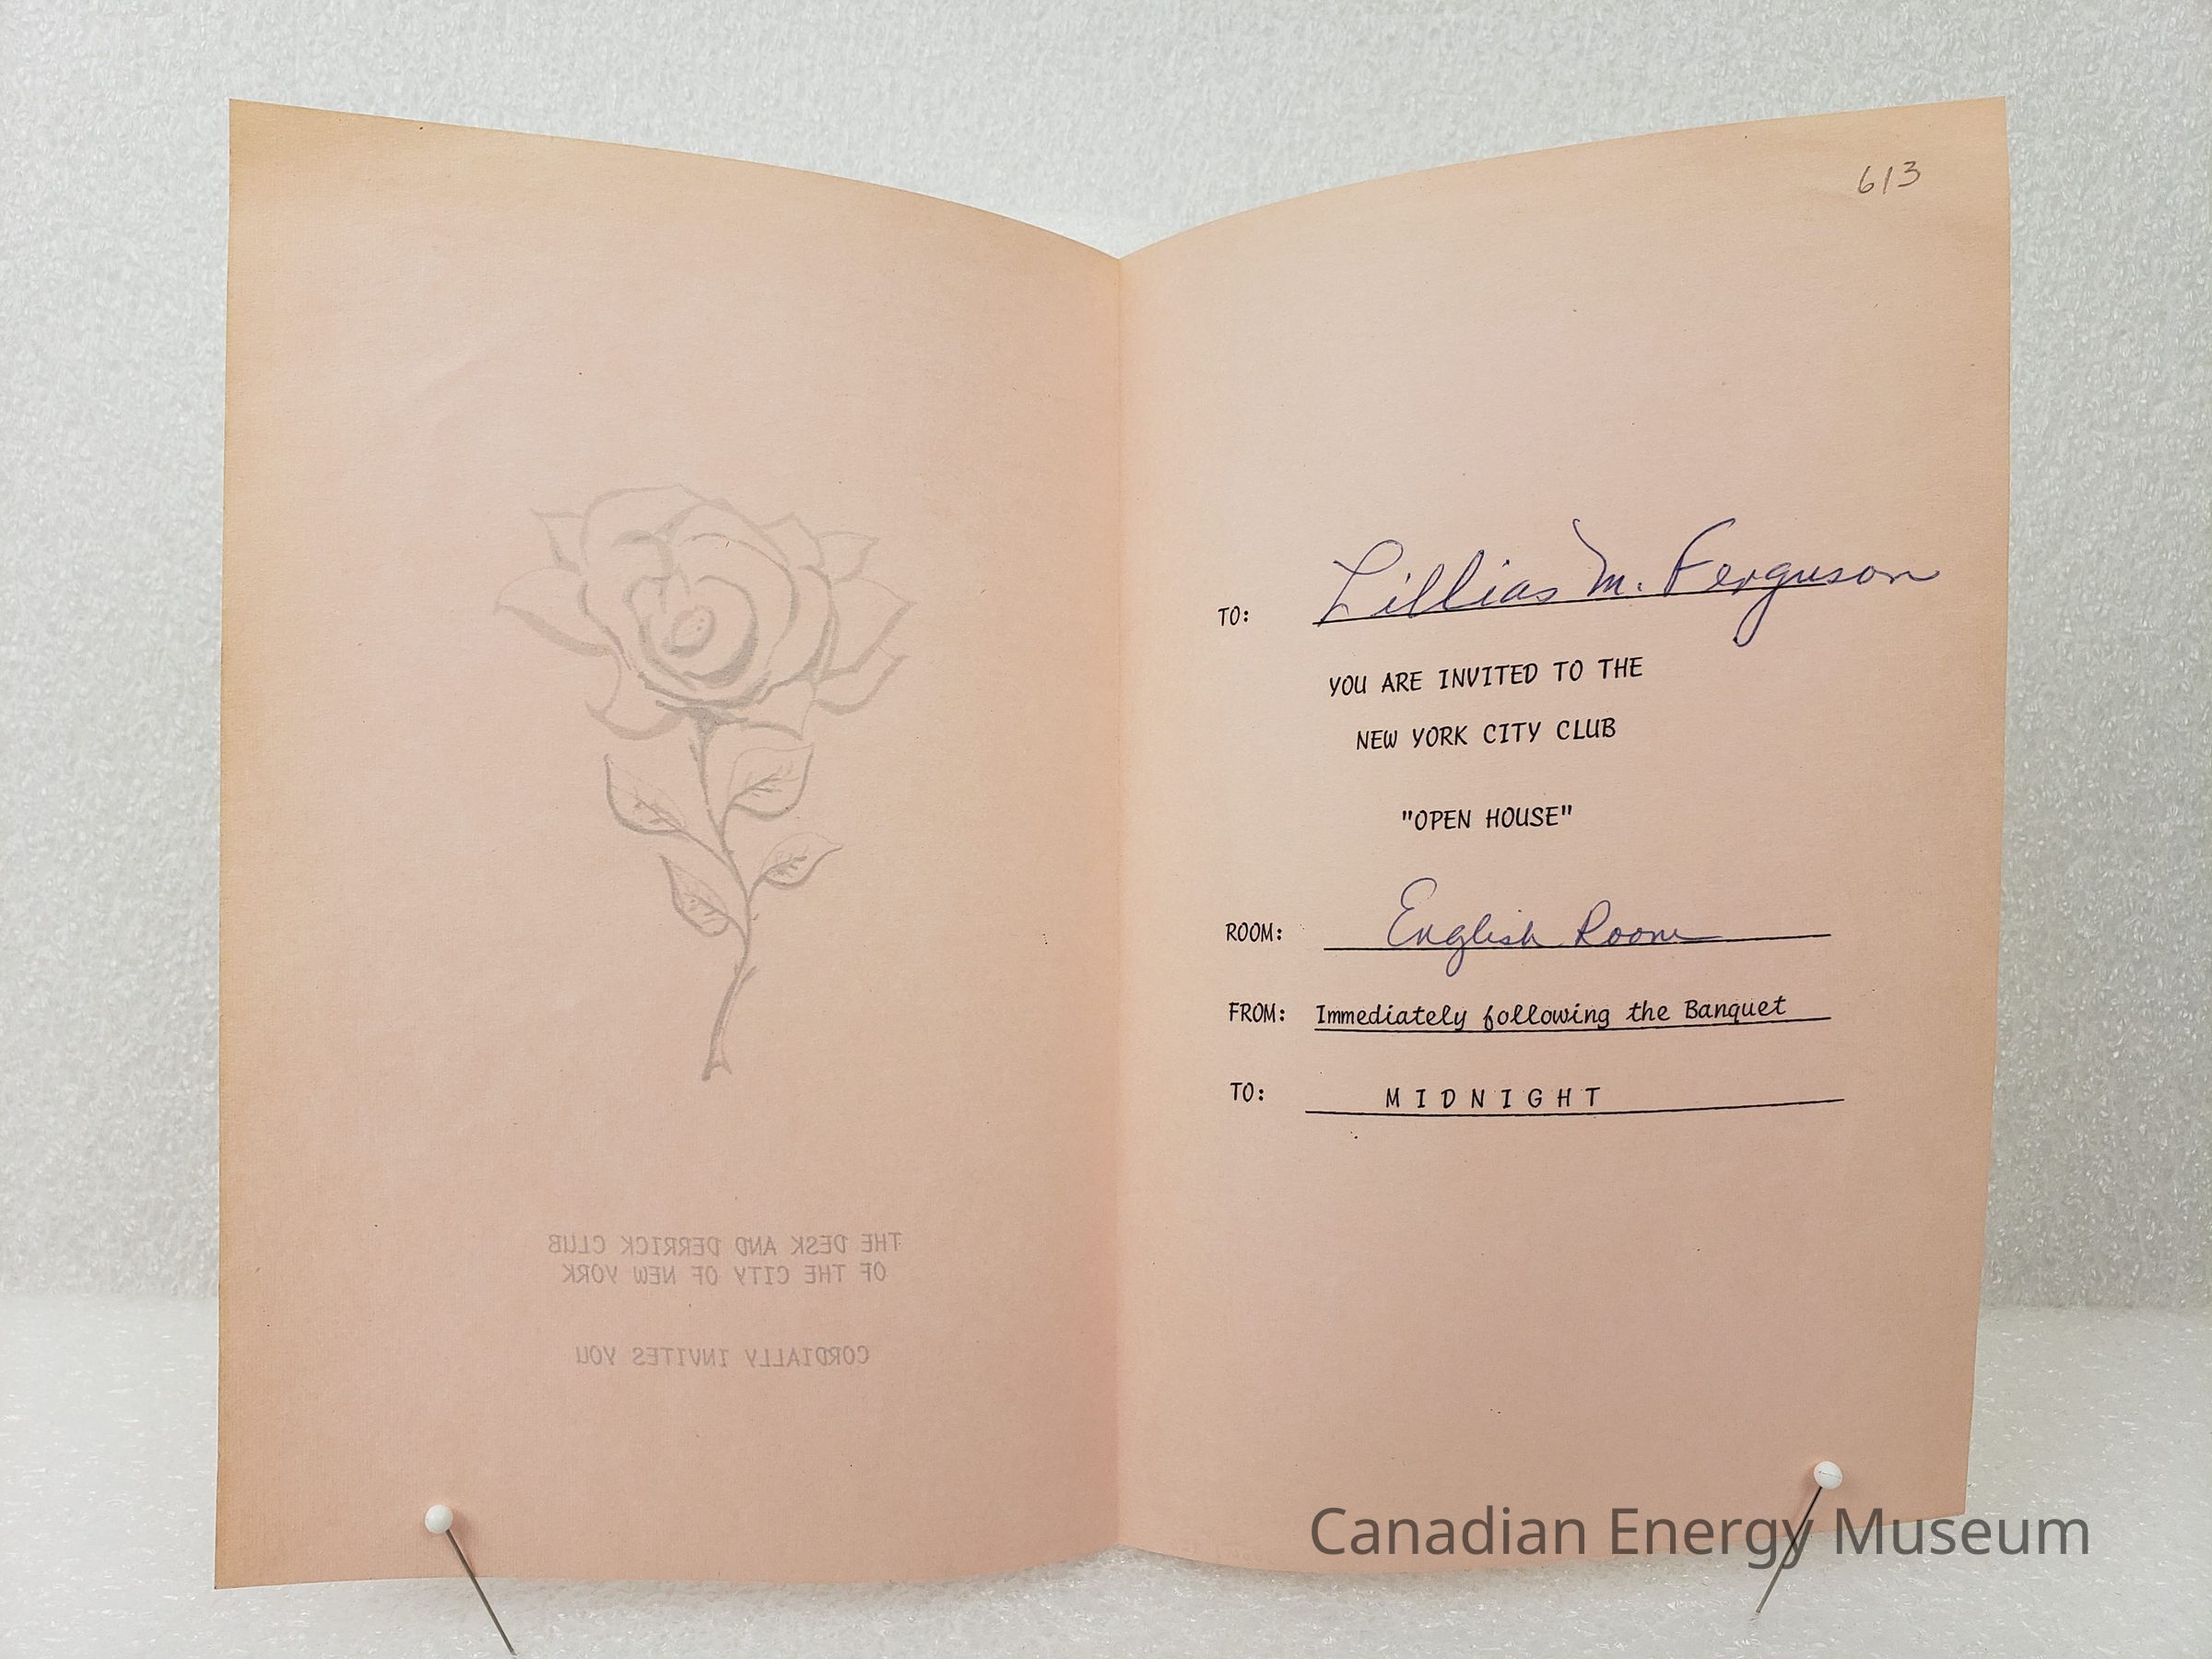 THE DESK AND DERRICK CLUB
OF THE CITY OF NEW YORK
CORDIALLY INVITES YOU
613
TO: Lillias M. Ferguson
YOU ARE INVITED TO THE
NEW YORK CITY CLUB
"OPEN HOUSE"
ROOM: English Room
FROM: Immediately following the Banquet
TO: MIDNIGHT
Canadian Energy Museum